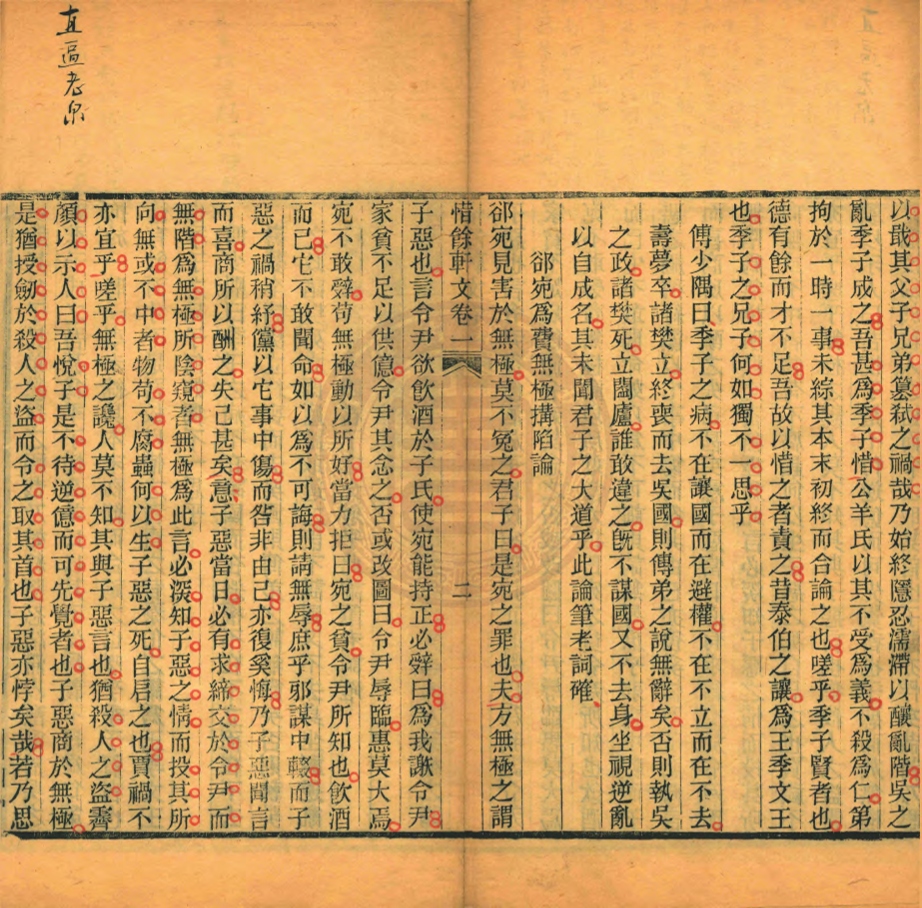 以戕其父子兄弟篡弒之禍哉乃始終隱忍濡滯以釀亂階吳之
亂季子成之吾甚爲季子惜公羊氏以其不受爲義不殺爲仁第
拘於一時一事未綜其本末初終而合論之也嗟乎季子賢者也
德有餘而才不足吾故以惜之者責之昔泰伯之讓爲王季文王
也季子之兄子何如獨不一思乎
傅少隅曰季子之病不在讓國而在避權不在不立而在不去
壽夢卒諸樊立終喪而去吳國則傳弟之說無辭矣否則執吳
之政諸樊死立闔廬誰敢違之旣不謀國又不去身坐視逆亂
以自成名其未聞君子之大道乎此論筆老詞確
郤宛爲費無極搆陷論
郤宛見害於無極莫不冤之君子曰是宛之罪也夫方無極之謂
惜餘軒文卷一
二
子惡也言令尹欲飲酒於子氏使宛能持正必辭曰爲我謝令尹
家貧不足以供億令尹其念之否或改圖曰令尹辱臨惠莫大焉
宛不敢辭苟無極動以所好當力拒曰宛之貧令尹所知也飲酒
而已它不敢聞命如以爲不可誨則請無辱庶乎邪謀中輟而子
惡之禍稍紓黨以它事中傷而咎非由己亦復奚悔乃子惡聞言
而喜商所以酬之失已甚矣意子惡當日必有求締交於令尹而
無階爲無極所陰窺者無極爲此言必深知子惡之情而投其所
向無或不中者物苟不腐蟲何以生子惡之死自启之也賈禍不
亦宜乎嗟乎無極之讒人莫不知其與子惡言也猶殺人之盜霽
顏以示人曰吾悅子是不待逆億而可先覺者也子惡商於無極
是猶授劒於殺人之盜而令之取其首也子惡亦悖矣哉若乃思
直逼老泉